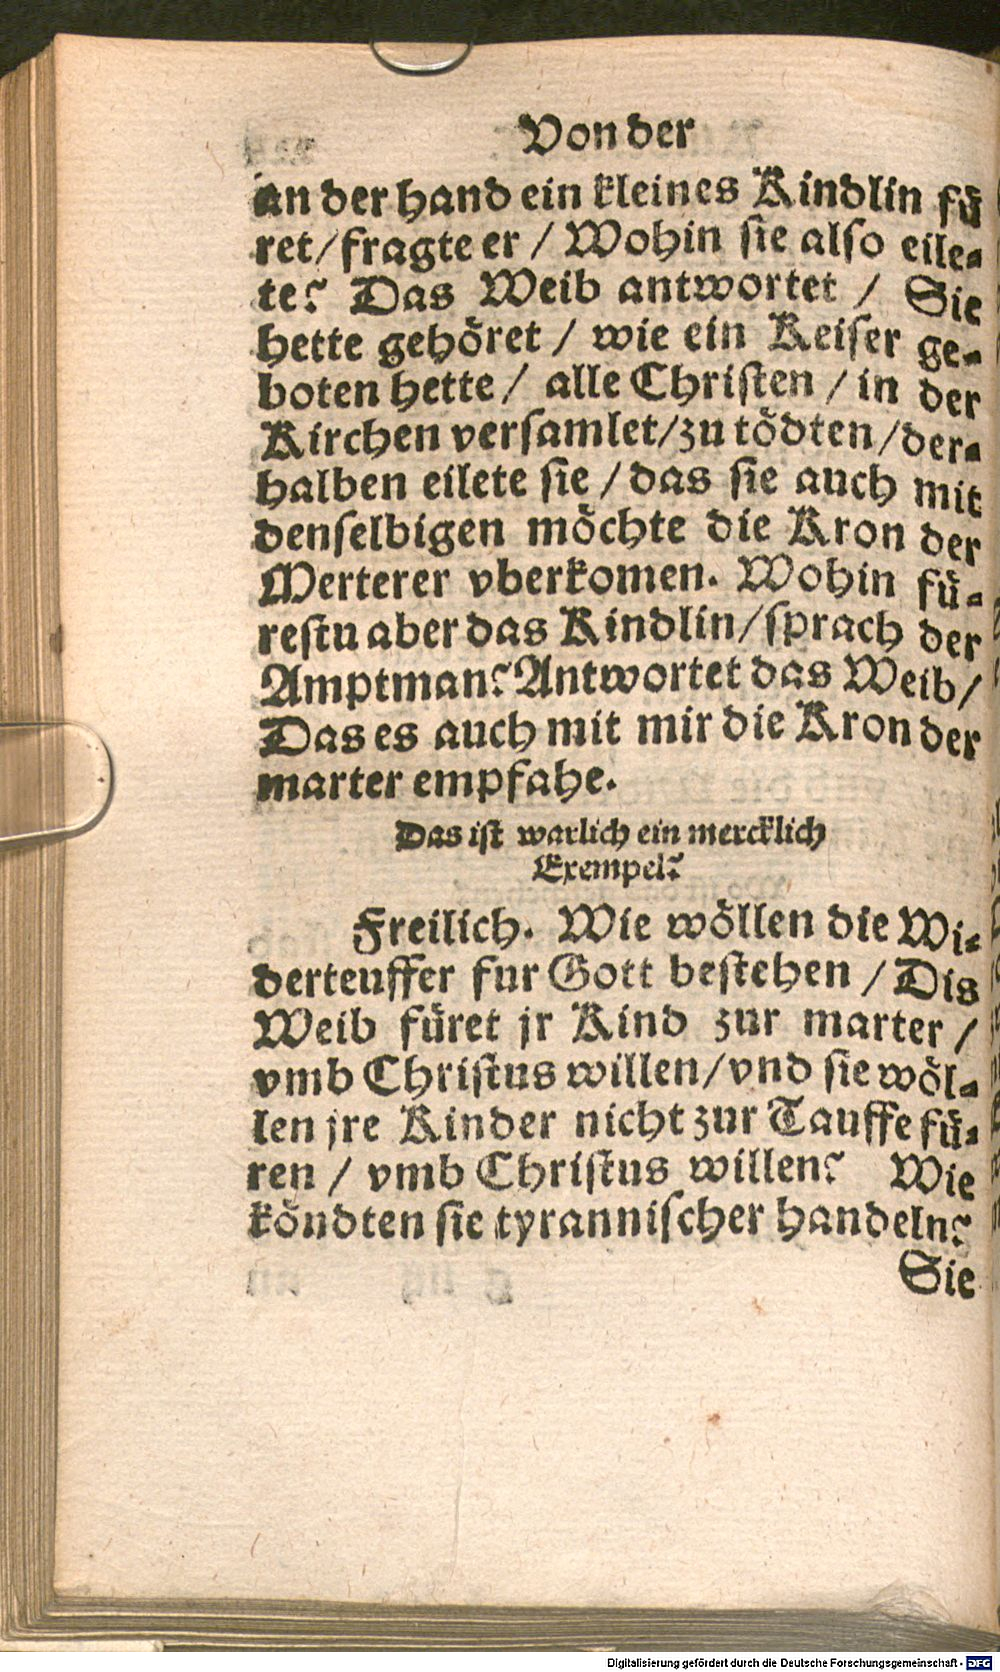 Von der
an der hand ein kleines Kindlin fuͤ
ret/fragte er / Wohin sie also eile⸗
te? Das Weib antwortet / Sie
hette gehoͤret / wie ein Keiser ge⸗
boten hette / alle Christen / in der
Kirchen versamlet/zu toͤdten/der⸗
halben eilete sie / das sie auch mit
denselbigen moͤchte die Kron der
Merterer vberkomen. Wohin fuͤ⸗
restu aber das Kindlin/sprach der
Amptman? Antwortet das Weib/
Das es auch mit mir die Kron der
marter empfahe.
Das ist warlich ein mercklich
Exempel?
Freilich. Wie woͤllen die Wi⸗
derteuffer fur Gott bestehen / Dis
Weib fuͤret jr Kind zur marter /
vmb Christus willen/vnd sie woͤl⸗
len jre Kinder nicht zur Tauffe fuͤ⸗
ren / vmb Christus willen? Wie
koͤndten sie tyrannischer handeln?
Sie
Digitalisierung gefördert durch die Deutsche Forschungsgemeinschaft - DFG